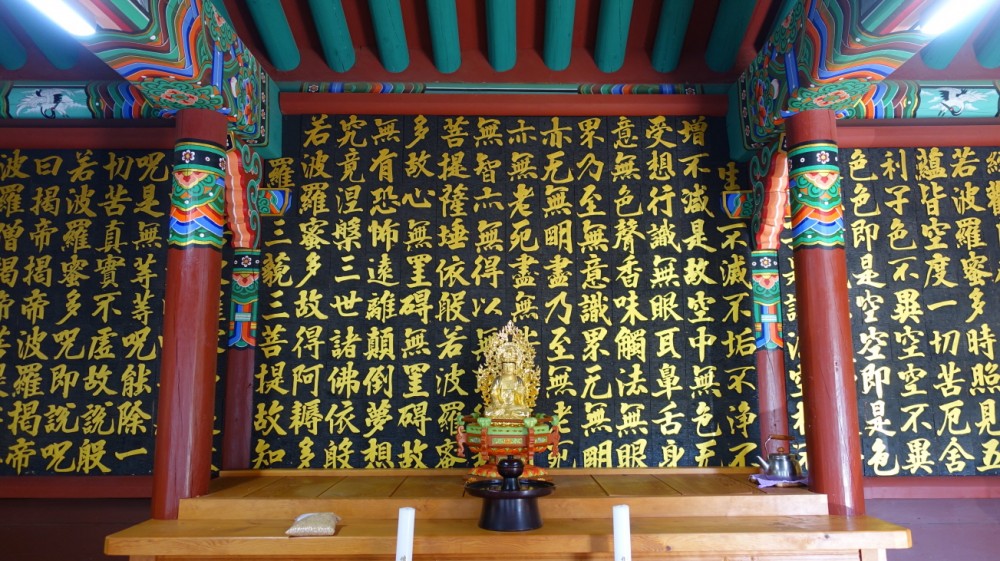 若波羅蜜多時照見五
蘊皆空度一切苦厄舍
利子色不異空空不異
色色即是空空即是色
生不滅不垢不淨不
增不減是故空中無色无
受想行識無眼耳鼻舌身
意無色聲香味觸法無眼
界乃至無意識界无無明
亦无無明盡乃至無老死
亦無老死盡無
無智亦無得以
菩提薩埵依般若波羅蜜
多故心無罣碍無罣碍故
無有恐怖遠離顛倒夢想
究竟涅槃三世諸佛依般
若波羅蜜多故得阿耨多
羅三藐三菩提故知
呪是無等等呪能除一
切苦真實不虛故說般
若波羅蜜多呪即說呪
曰揭帝揭帝波羅揭帝
波羅僧揭帝菩提